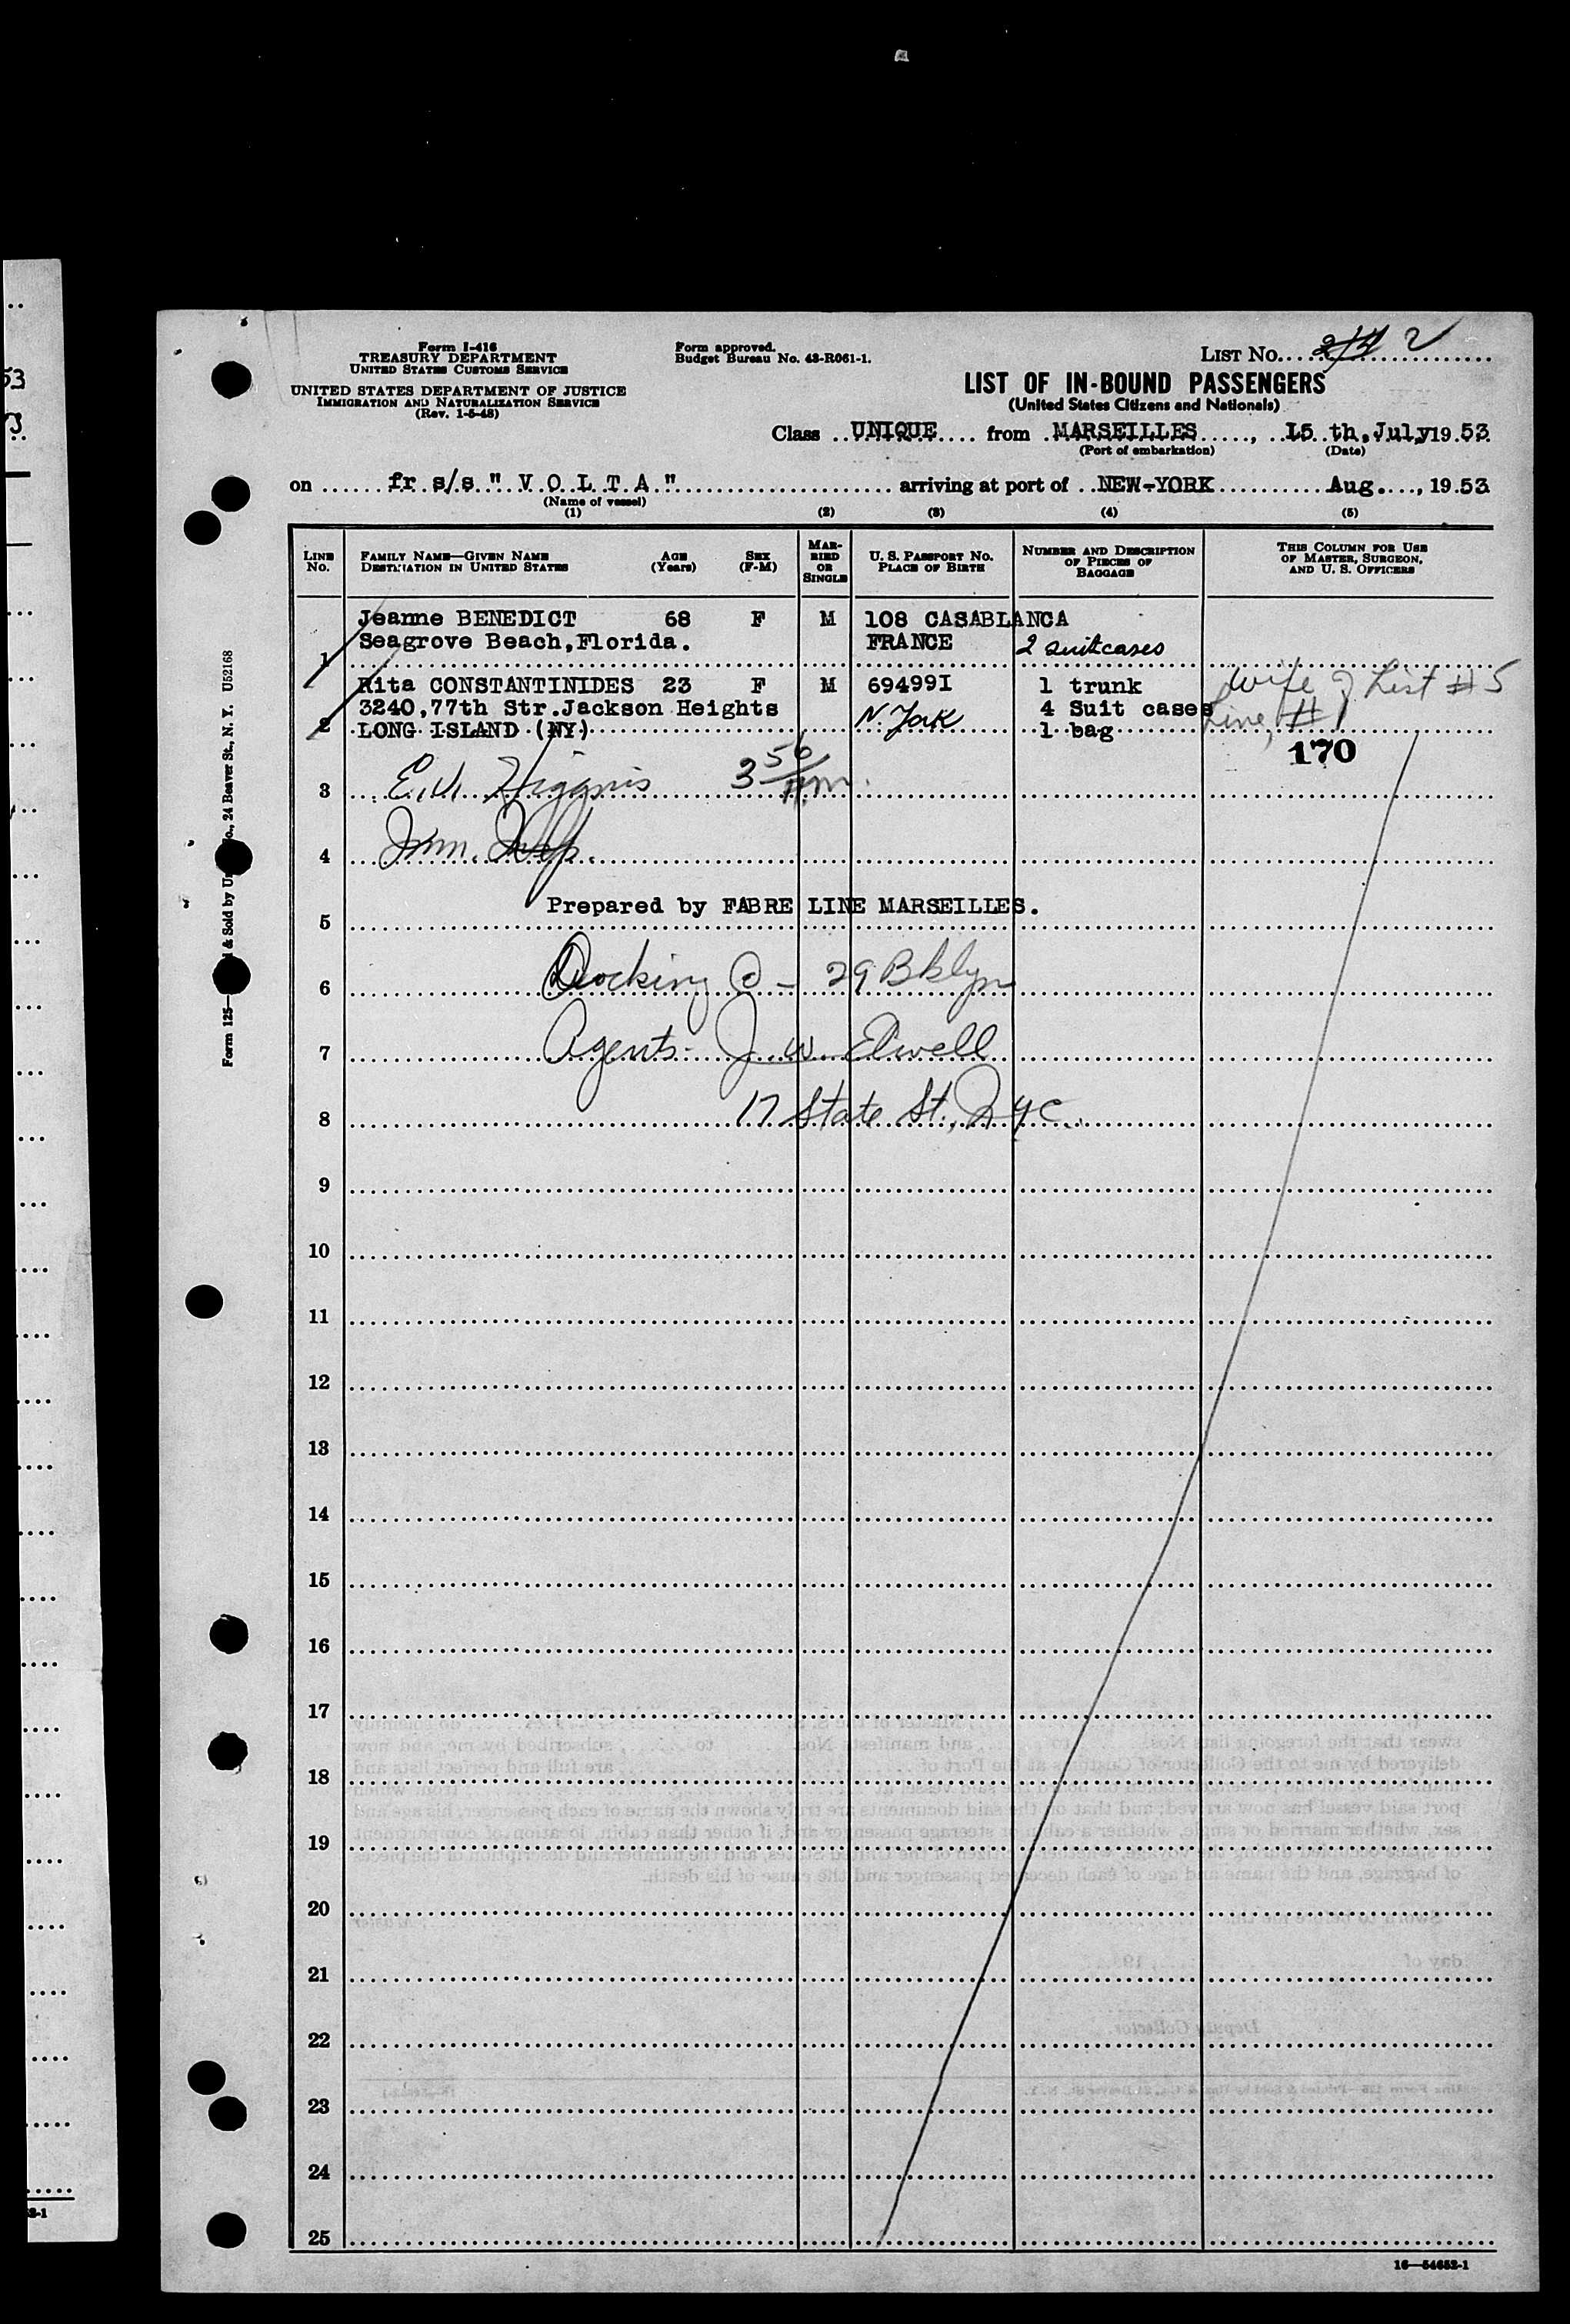 Form I-416
TREASURY DEPARTMENT
UNITED STATES CUSTOMS SERVICE
UNITED STATES DEPARTMENT OF JUSTICE
IMMIGRATION AND NATURALIZATION SERVICE
(Rev. 1-5-48)
Form approved.
Budget Bureau No. 43-R061-1.
LIST No. 2
LIST OF IN-BOUND PASSENGERS
(United States Citizens and Nationals)
Class UNIQUE from MARSEILLES, 15 th, July, 19 53
(Port of embarkation) (Date)
on fr s/s " V O L T A " arriving at port of NEW-YORK Aug., 19 53
(Name of vessel)
(1) (2) (3) (4) (5)
LINE No.
FAMILY NAME—GIVEN NAME
DESTINATION IN UNITED STATES
AGE (Years)
SEX (F-M)
MARRIED OR SINGLE
U. S. PASSPORT NO.
PLACE OF BIRTH
NUMBER AND DESCRIPTION OF PIECES OF BAGGAGE
THIS COLUMN FOR USE OF MASTER, SURGEON, AND U. S. OFFICERS
Jeanne BENEDICT 68 F M 108 CASABLANCA
Seagrove Beach, Florida. FRANCE 2 suitcases
1
Rita CONSTANTINIDES 23 F M 694991 1 trunk Wife of List #5
3240,77th Str.Jackson Heights N. York 4 Suit cases Line #1
2 LONG ISLAND (NY) 1 bag
170
3 Higgins 3 56 P.m.
4 Imm. Insp.
Prepared by FABRE LINE MARSEILLES.
5
6 Docking @ - 29 Bklyn
7 Agents- J. W. Elwell
8 17 State St., NYC.
9
10
11
12
13
14
15
16
17
18
19
20
21
22
23
24
25
16—54652-1
Form 125— & Sold by Co., 24 Beaver St., N. Y. U52168